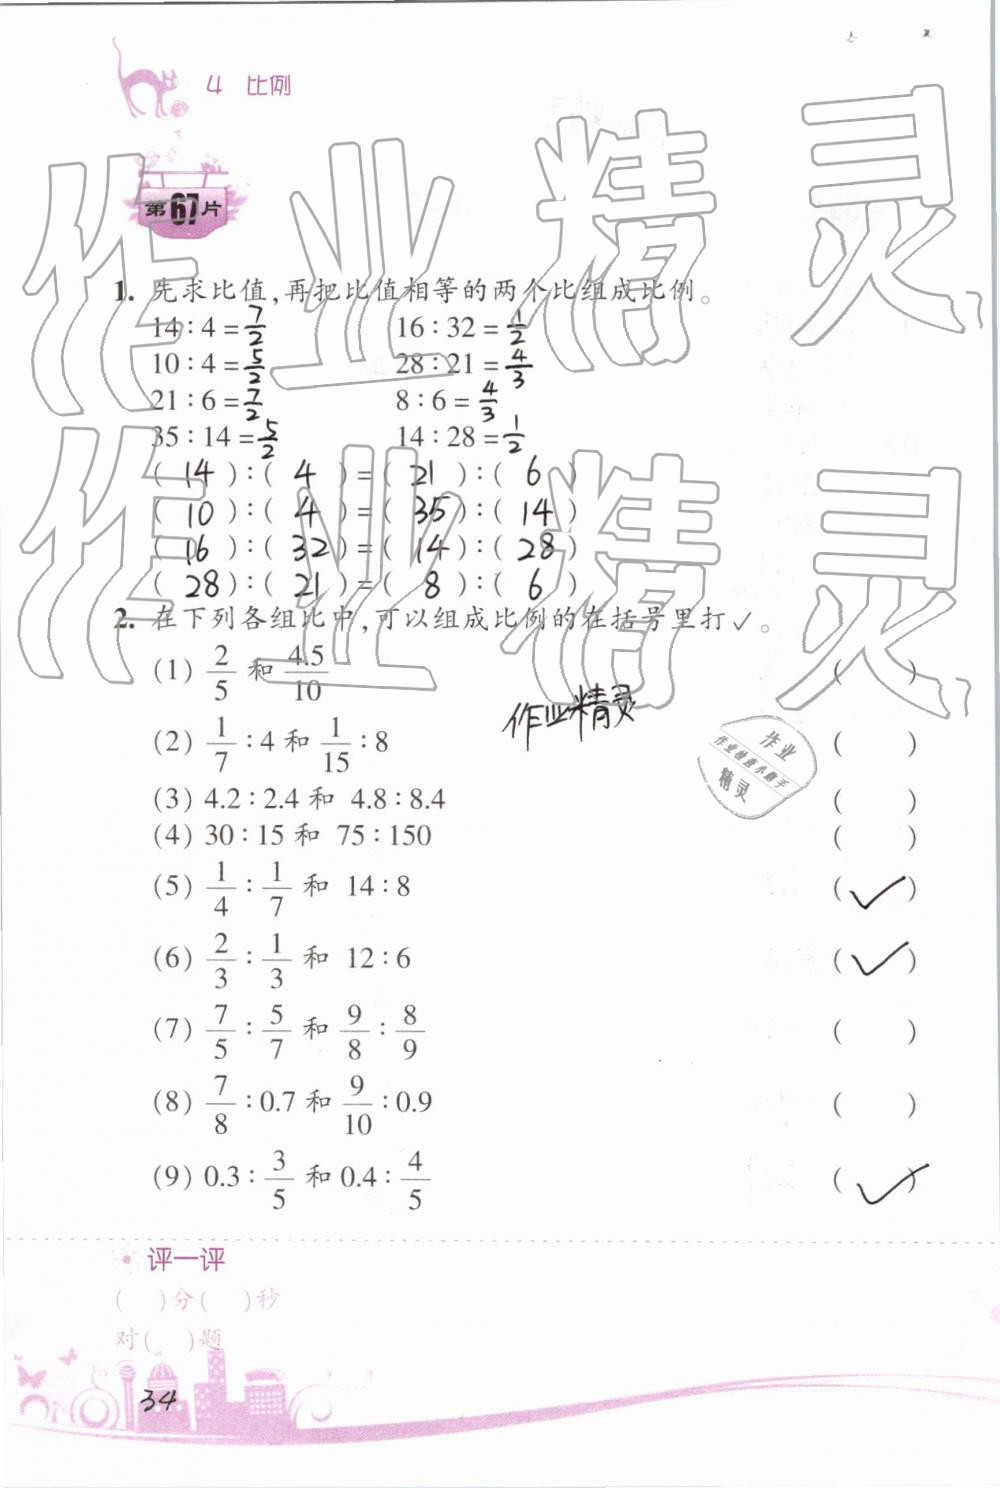 4 比例
第67片
1. 先求比值,再把比值相等的两个比组成比例。
14∶4=7/2 16∶32=1/2
10∶4=5/2 28∶21=4/3
21∶6=7/2 8∶6=4/3
35∶14=5/2 14∶28=1/2
( 14 )∶( 4 )=( 21 )∶( 6 )
( 10 )∶( 4 )=( 35 )∶( 14 )
( 16 )∶( 32 )=( 14 )∶( 28 )
( 28 )∶( 21 )=( 8 )∶( 6 )
2. 在下列各组比中,可以组成比例的在括号里打✓。
(1) 2/5 和 4.5/10 ( )
(2) 1/7∶4 和 1/15∶8 ( )
(3) 4.2∶2.4 和 4.8∶8.4 ( )
(4) 30∶15 和 75∶150 ( )
(5) 1/4∶1/7 和 14∶8 (✓)
(6) 2/3∶1/3 和 12∶6 (✓)
(7) 7/5∶5/7 和 9/8∶8/9 ( )
(8) 7/8∶0.7 和 9/10∶0.9 ( )
(9) 0.3∶3/5 和 0.4∶4/5 (✓)
作业精灵
作业
作业检查小助手
精灵
评一评
( )分( )秒
对( )题
34
作业精灵
作业精灵